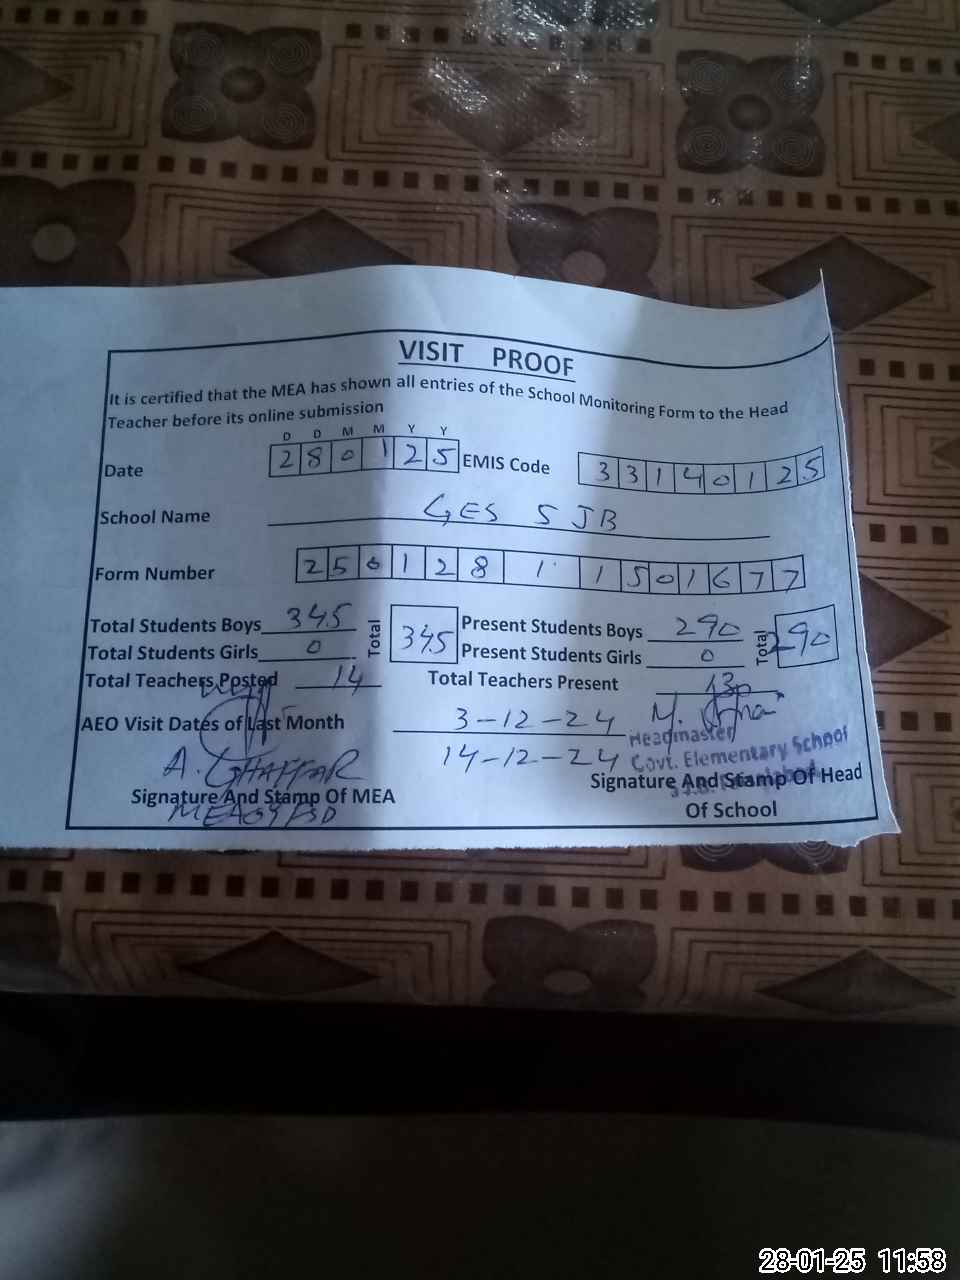 VISIT PROOF
It is certified that the MEA has shown all entries of the School Monitoring Form to the Head
Teacher before its online submission
D D M M Y Y
Date 280125 EMIS Code 33140125
School Name GES 5 JB
Form Number 250128 1 1501677
Total Students Boys 345 Total 345 Present Students Boys 290 Total 290
Total Students Girls 0 Present Students Girls 0
Total Teachers Posted 14 Total Teachers Present 13
AEO Visit Dates of Last Month 3-12-24
14-12-24
Headmaster
Govt. Elementary School
A. GHAFFAR
Signature And Stamp Of MEA
Signature And Stamp Of Head
Of School
28-01-25 11:58